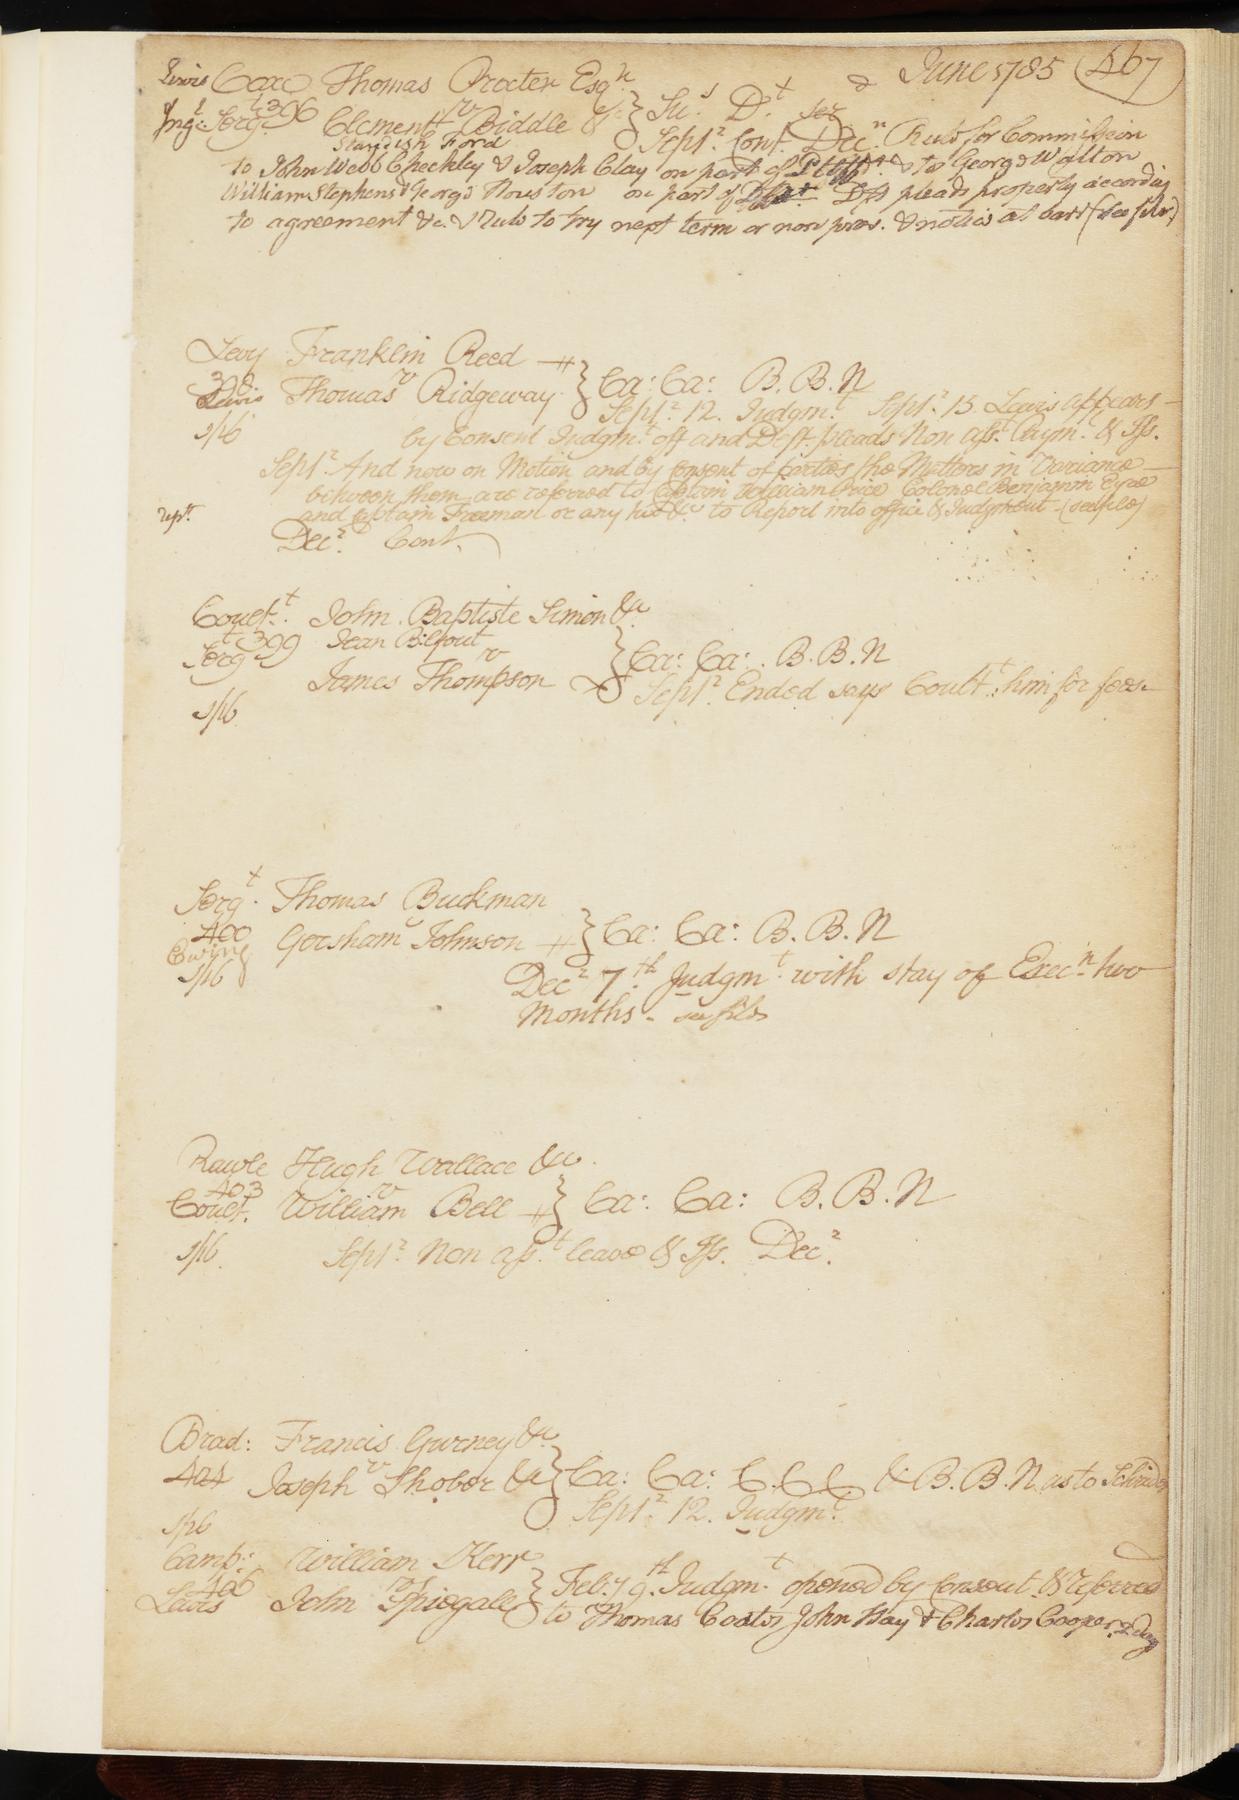 June 1785 467
Lewis Coxe Thomas Procter Esqr
Ing: Sergt 396 Clement v Biddle &c } Su.s D.t ser
Standish Ford Sept.r Cont. Dec.r Rule for Commission
to John Webb Checkley & Joseph Clay on part of & to George Walton
William Stephens & George Houston on part of Dft pleads property according
to agreement &c. & Rule to try next term or non pros. & notice at barr (see file)
Levy Franklin Reed
398 v
Lewis Thomas Ridgeway } Ca: Ca: B. B. N
Sept.r 12. Judgm.t Sept.r 15. Lewis appears
s/16 by Consent Judgm.t off and Deft. pleads Non ass.t Paym.t & Iss.
Sept.r And now on Motion and by Consent of parties the Matters in Variance
between them are referred to Captain William Price Colonel Benjamin Eyre
rept. and Captain Freeman or any two &c to Report into office & Judgment (see file)
Dec.r Cont.
Coult.t John Baptiste Simon &c
Sergt 399 Jean Bilfout
v } Ca: Ca: B. B. N
James Thompson Sept.r Ended says Coult.t him for fees
s/16
Serg.t Thomas Buckman
400 v
Ewing Gersham Johnson } Ca: Ca: B. B. N
s/16 Dec.r 7.th Judgm.t with stay of Exec.n two
Months - see file
Rawle Hugh Wallace &c.
403 v
Coult. William Bell } Ca: Ca: B. B. N
s/16 Sept.r Non ass.t leave & Iss. Dec.r
Brad: Francis Gurney &c
404 v
Joseph Shober &c } Ca: Ca: C.C.C & B. B. N as to
s/16 Sept.r 12. Judgm.t
Camp: William Kerr
406 v } Feb.y 9.th Judgm.t opened by Consent & referred
Lewis John Spiegale to Thomas Coats John Hay & Charles Cooper